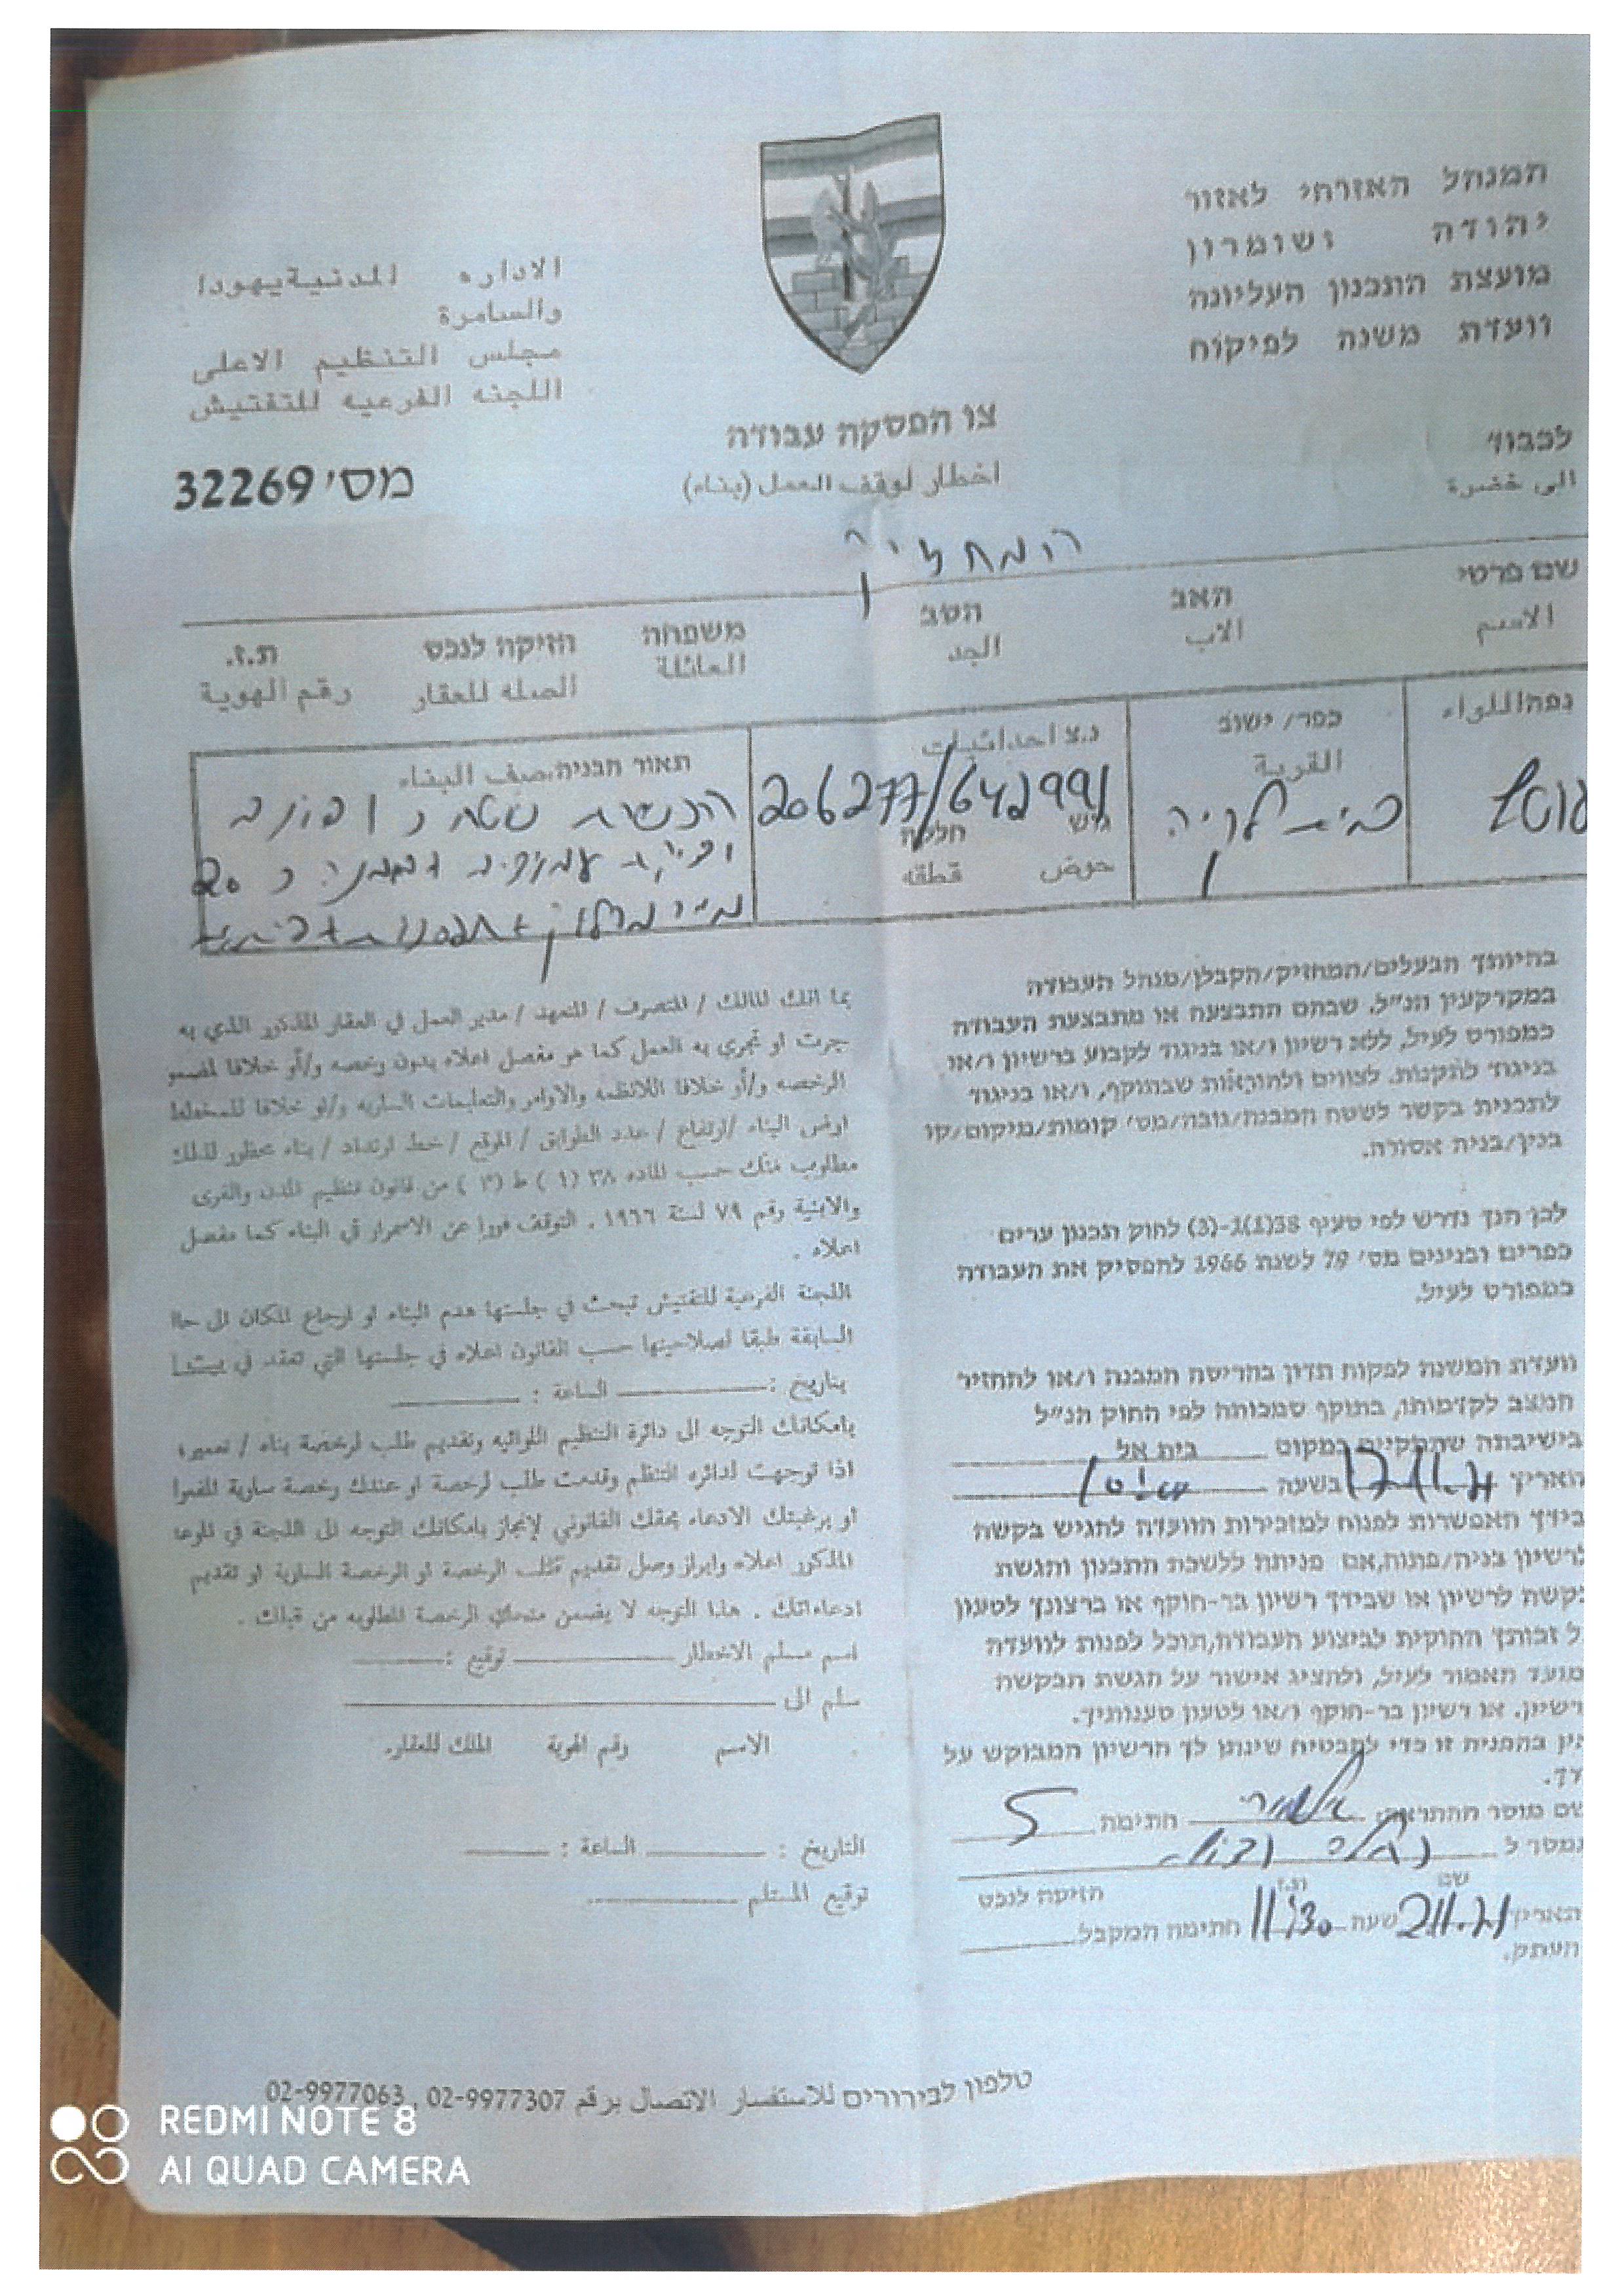 המנהל האזרחי לאזור
יהודה ושומרון
מועצת התכנון העליונה
וועדת משנה לפיקוח
الاداره المدنية يهودا
والسامرة
مجلس التنظيم الاعلى
اللجنه الفرعيه للتفتيش
צו הפסקת עבודה
اخطار لوقف العمل (بناء)
מס' 32269
לכבוד
الى حضرة
המחזיק
שם פרטי האב הסב משפחה הזיקה לנכס ת.ז.
الاسم الاب الجد العائلة الصله للعقار رقم الهوية
נפה اللواء
כפר/ ישוב
القرية
נ.צ احداثيات
206277/642991
גוש חלקה
حوض قطعه
תאור הבניה وصف البناء
הכשרת שטח
20
בהיותך הבעלים/המחזיק/הקבלן/מנהל העבודה
במקרקעין הנ"ל, שבהם התבצעה או מתבצעת העבודה
כמפורט לעיל, ללא רשיון ו/או בניגוד לקבוע ברשיון ו/או
בניגוד לתקנות, לצווים ולהוראות שבתוקף, ו/או בניגוד
לתכנית בקשר לשטח המבנה/גובה/מס' קומות/מיקום/קו
בנין/בנית אסורה.
לכן הנך נדרש לפי סעיף 38(1)ג-(3) לחוק תכנון ערים
כפרים ובנינים מס' 79 לשנת 1966 להפסיק את העבודה
כמפורט לעיל.
וועדת המשנה לפקוח תדון בהריסת המבנה ו/או להחזיר
המצב לקדמותו, בתוקף סמכותה לפי החוק הנ"ל
בישיבתה שתתקיים במקום בית אל
בשעה
בידך האפשרות לפנות למזכירות הוועדה להגיש בקשה
לרשיון בניה/פתוח, אם פנית ללשכת התכנון והגשת
בקשה לרשיון או שבידך רשיון בר-תוקף או ברצונך לטעון
זכותך החוקית לביצוע העבודה, תוכל לפנות לוועדה
האמור לעיל, ולהציג אישור על הגשת הבקשה
או רשיון בר-תוקף ו/או לטעון טענותיך.
אין בהפנית זו כדי להבטיח שינתן לך הרשיון המבוקש על
שם מוסר ההתראה חתימה
נמסר ל
שם ת.ז הזיקה לנכס
התאריך 2.11.21 שעה 11:30 חתימת המקבל
העתק.
بما انك المالك / المتصرف / المتعهد / مدير العمل في العقار المذكور الذي به
جرت او تجري به العمل كما هو مفصل اعلاه بدون رخصه و/أو خلافا
الرخصه و/أو خلافا اللانظمه والاوامر والتعليمات الساريه و/او خلافا للمخطط
البناء /ارتفاع / عدد الطوابق / الموقع / خط ارتداد / بناء محظور لذلك
مطلوب منك حسب الماده ٣٨ (١) ط (٣) من قانون تنظيم المدن والقرى
والابنية رقم ٧٩ لسنة ١٩٦٦ . التوقف فورا عن الاستمرار في البناء كما مفصل
اعلاه .
اللجنة الفرعية للتفتيش تبحث في جلستها هدم البناء او ارجاع المكان الى
السابقة طبقا لصلاحيتها حسب القانون اعلاه في جلستها التي تعقد في
بتاريخ : الساعة :
بامكانك التوجه الى دائرة التنظيم اللوائيه وتقديم طلب لرخصة بناء / تعمير،
اذا توجهت لدائره التنظيم وقدمت طلب لرخصة او عندك رخصة سارية
او برغبتك الادعاء بحقك القانوني لإنجاز بامكانك التوجه الى اللجنة في
المذكور اعلاه وابراز وصل تقديم طلب الرخصة او الرخصة السارية او تقديم
ادعاءاتك . هذا التوجه لا يضمن منحك الرخصة المطلوبه من قبلك .
اسم مسلم الاخطار توقيع :
سلم الى
الاسم رقم الهوية الملك للعقار
التاريخ : الساعة :
توقيع المستلم
טלפון לבירורים للاستفسار الاتصال برقم 02-9977307 , 02-9977063
REDMI NOTE 8
AI QUAD CAMERA